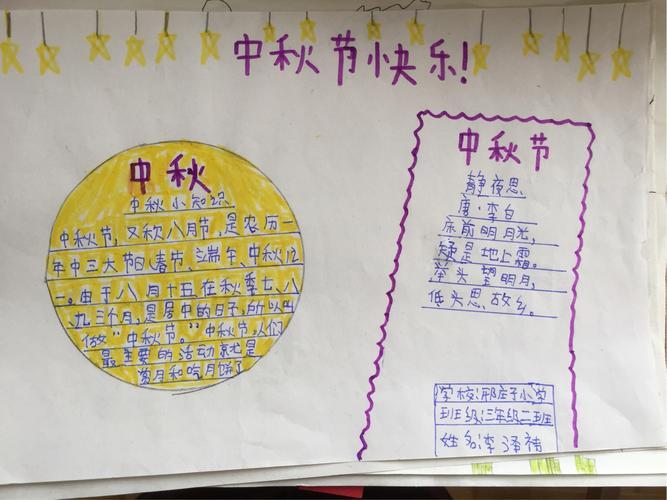 中秋节快乐!
中秋
中秋小知识
中秋节,又称八月节,是农历一
年中三大节日(春节、端午、中秋)之
一。由于八月十五在秋季七、八
九三个月,是居中的日子,所以叫
做"中秋节。"中秋节,人们
最主要的活动就是
赏月和吃月饼了
中秋节
静夜思
唐·李白
床前明月光,
疑是地上霜。
举头望明月,
低头思故乡。
学校:邢庄子小学
班级:三年级二班
姓名:李泽祎